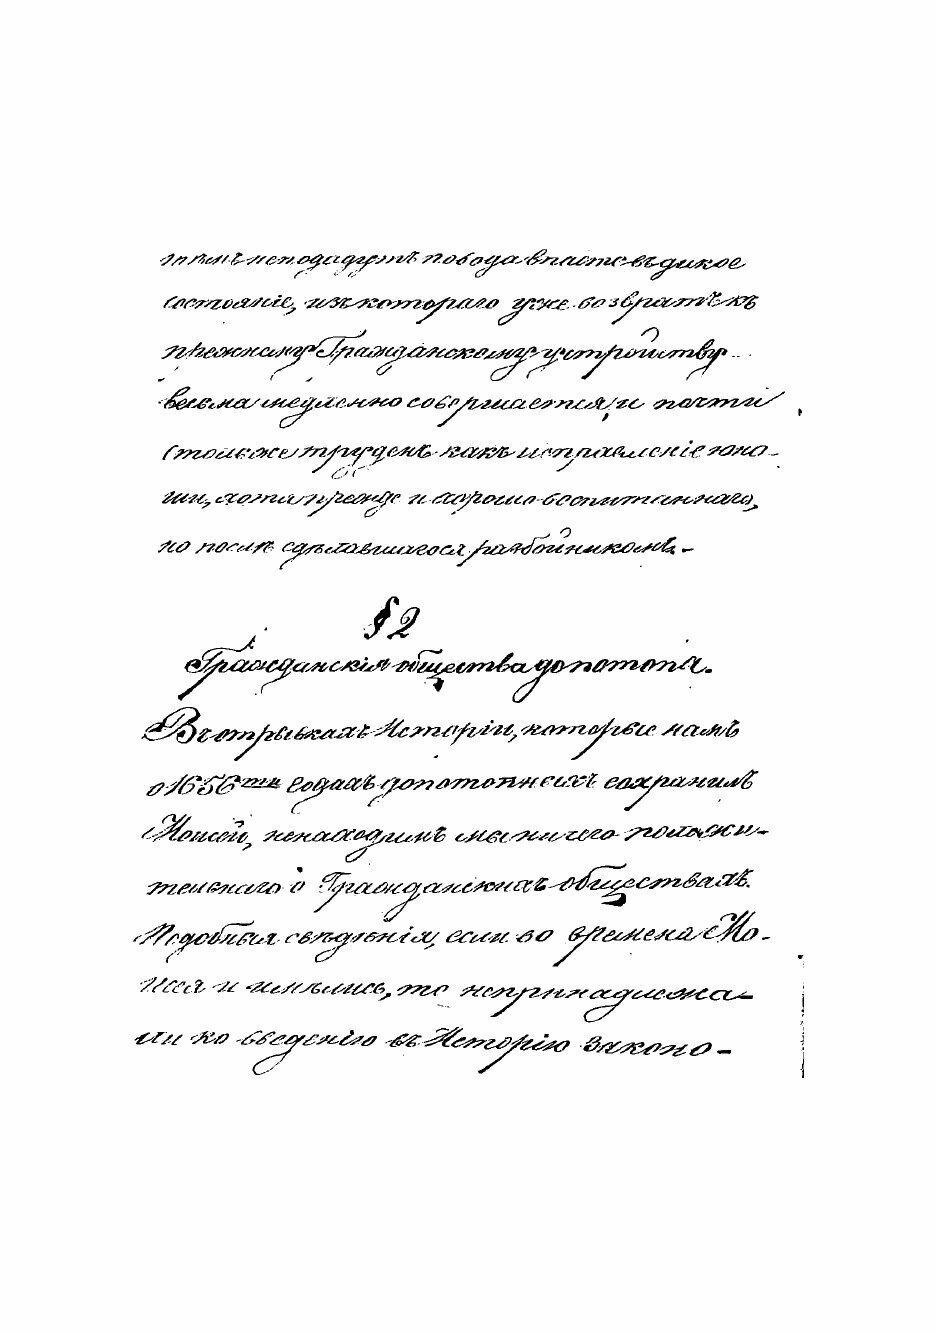 тѣмъ неподадутъ повода впасть въ дикое
состояніе, изъ котораго уже возвратъ къ
прежнему Гражданскому устройству
весьма медленно совершается, и почти
столькоже труденъ какъ исправленіе юно-
ши, хотя прежде и хорошо воспитаннаго,
но послѣ сдѣлавшагося разбойникомъ.-
§ 2
Гражданскія общества до потопа.
Въ отрывкахъ Исторіи, которые намъ
о 1656ти годахъ допотопныхъ сохранилъ
Моисей, ненаходимъ мы ничего положи-
тельнаго о Гражданскихъ обществахъ.
Подобныя свѣдѣнія, если во времена Мо-
исея и имѣлись, то непринадлежа-
ли ко введенію въ Исторію законо-